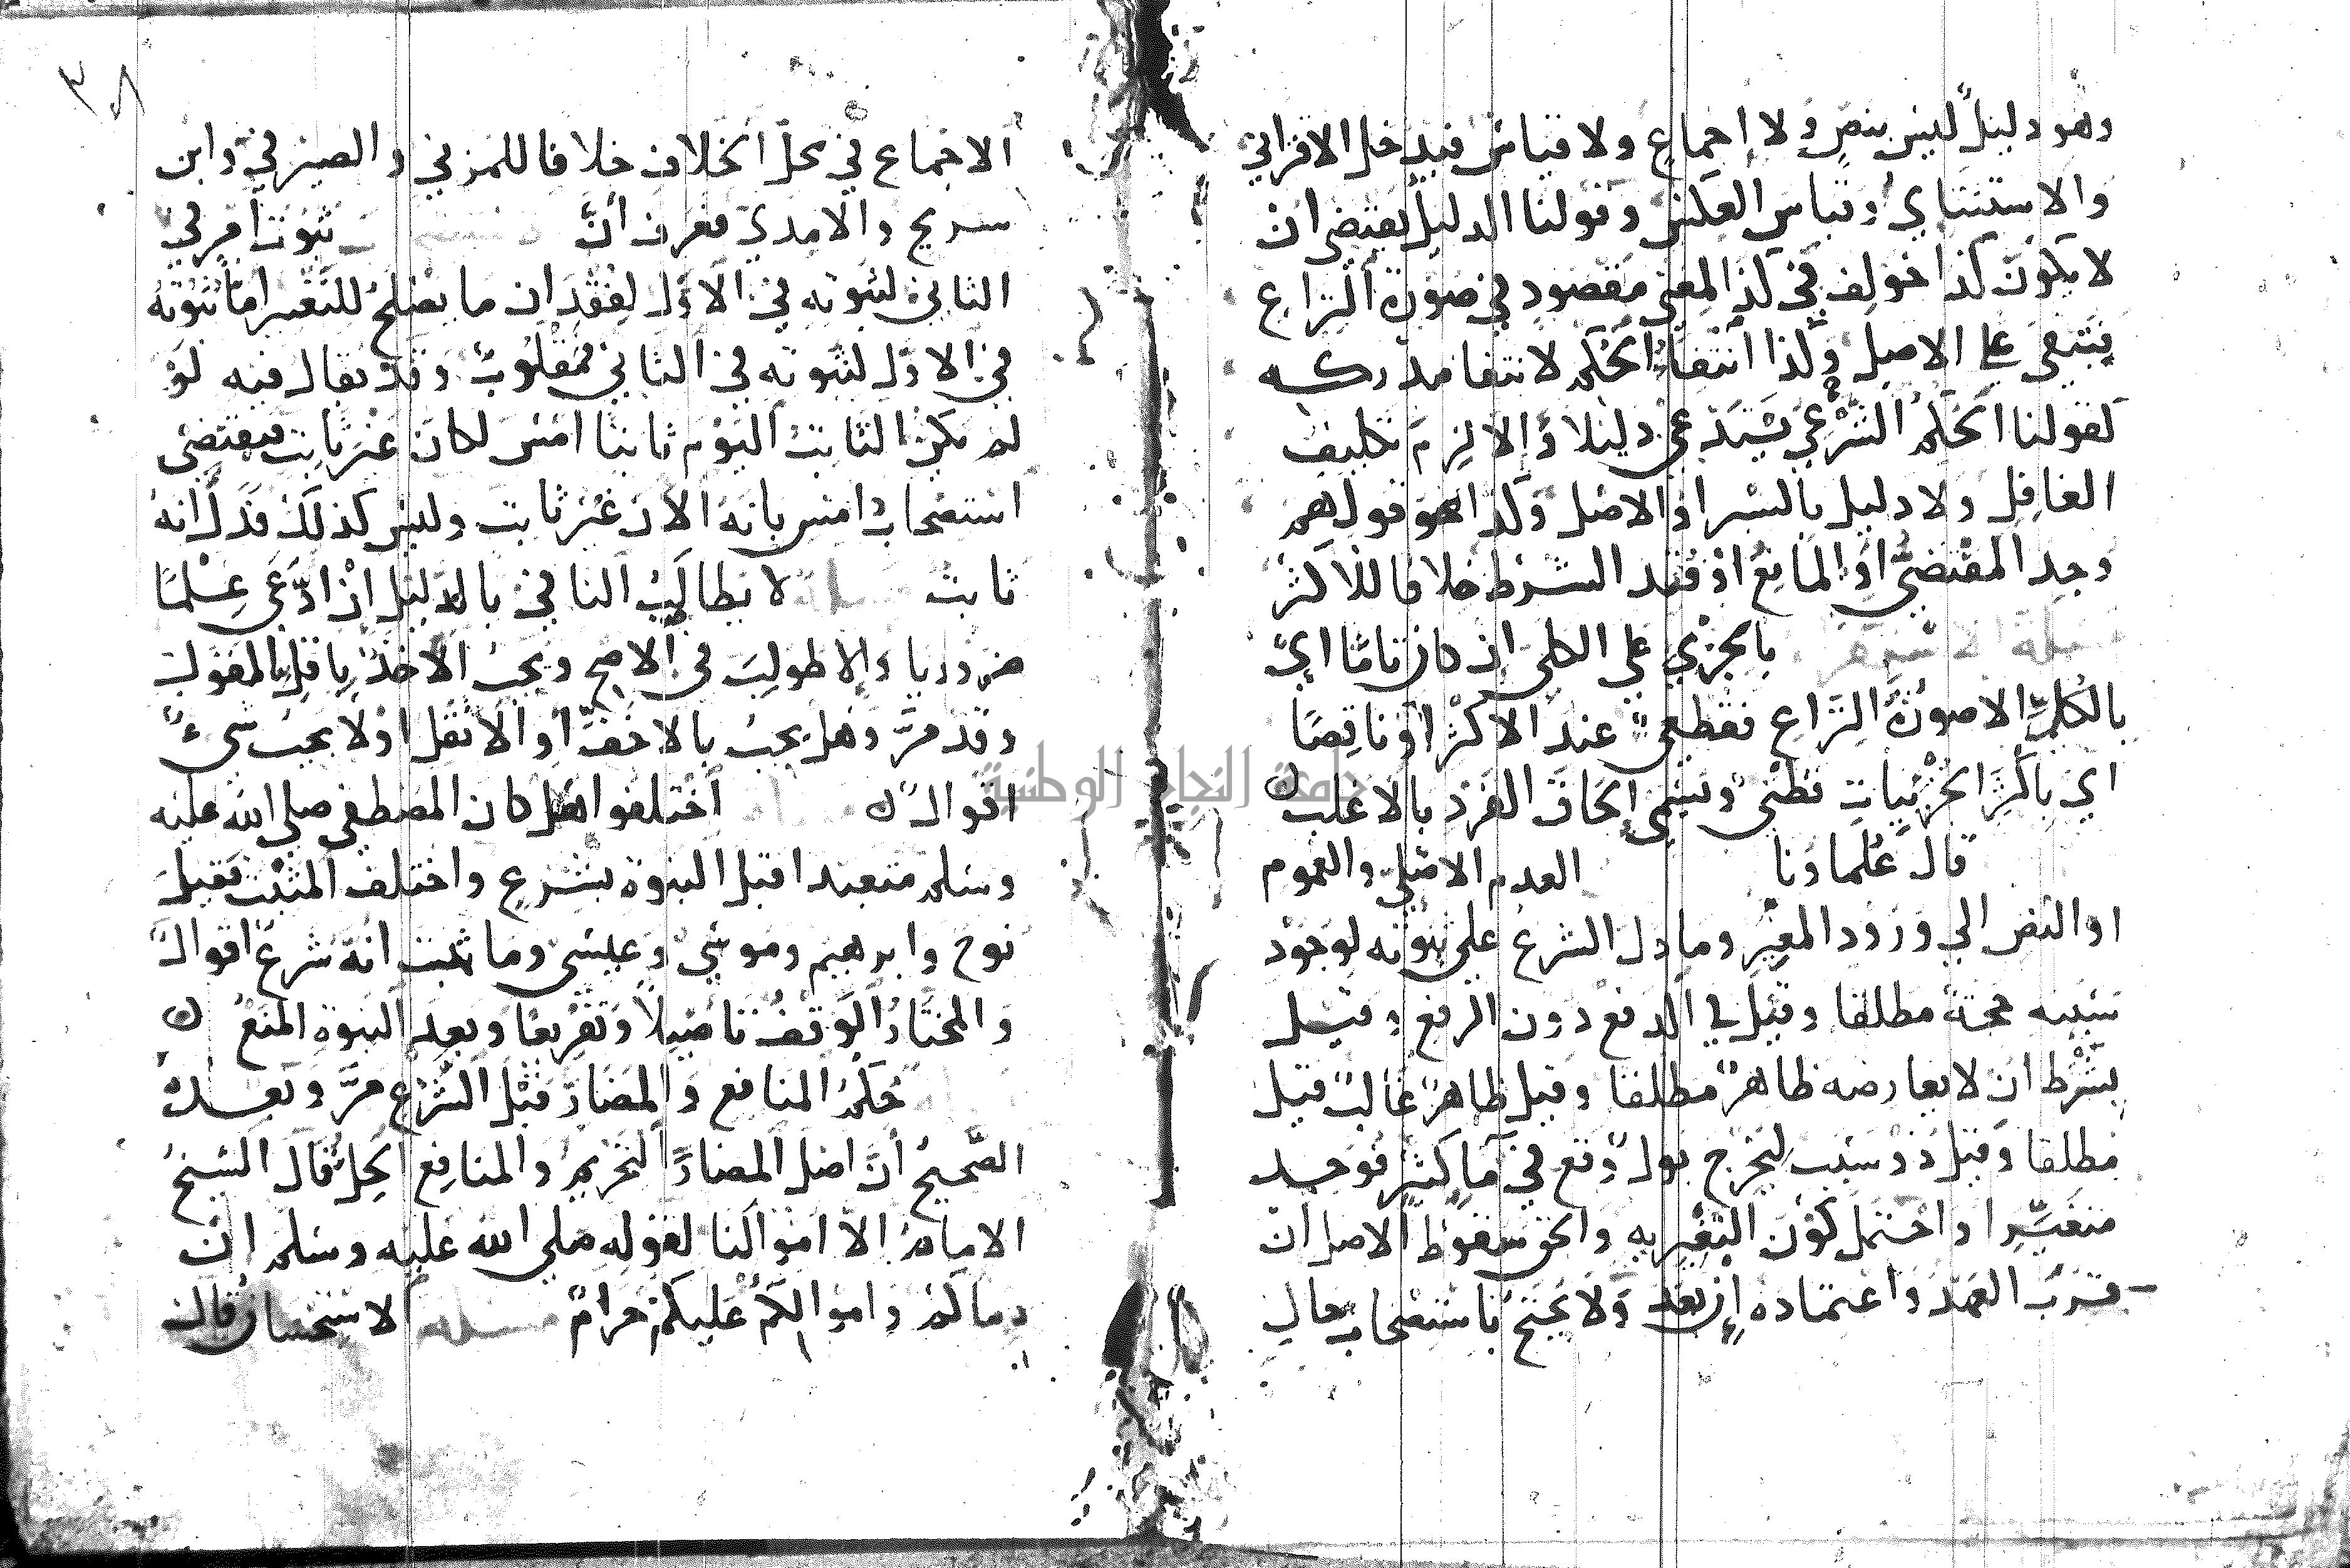 وهو دليل ليس بنص ولا إجماع ولا قياس فيدخل الاقتراني
والاستثنائي وقياس العكس وقولنا الدليل يقتضي ان
لا يكون كذا خولف في كذا لمعنى مفقود في صورة النزاع
فتبقى على الاصل وكذا انتفاء الحكم لانتفا مدركه
كقولنا الحكم الشرعي يستدعي دليلا وإلا لزم تكليف
الغافل ولا دليل بالسبر او الاصل وكذا هو قولهم
وجد المقتضي او المانع او فقد الشرط خلافا للاكثر
مسئلة الاستقرا بالجزئي على الكلي ان كان تامّا اي
بالكل الا صورة النزاع فقطعي عند الاكثر او ناقصا
اي باكثر الجزئيات فظني ويسمى إلحاق الفرد بالاغلب
قال علماونا العدم الاصلي والعموم
او النص الي ورود المغير وما دل الشرع على ثبوته لوجود
سببه حجة مطلقا وقيل في الدفع دون الرفع وقيل
بشرط ان لا يعارضه ظاهر مطلقا وقيل ظاهر غالب قيل
مطلقا وقيل ذو سبب ليخرج بول وقع في ما كثير فوجد
متغيرا واحتمل كون التغير به والحق سقوط الاصل ان
قرب العهد واعتماده إن بعد ولا يحتج باستصحاب حال
٣٨
الاجماع في محل الخلاف خلافا للمزني والصيرفي وابن
سريج والامدي فعرف أنّ ثبوت أمر في
الثاني لثبوته في الاول لفقدان ما يصلح للتغير امّا ثبوته
في الاول لثبوته في الثاني فمقلوب وقد يقال فيه لو
لم يكن الثابت اليوم ثابتا امس لكان غير ثابت فيقتضي
استصحاب امس بانه الان غير ثابت وليس كذلك فدل انه
ثابت مسئلة لا يطالب النافي بالدليل ان ادّعى علمًا
ضروريا وإلا طولب في الاصح ويجب الاخذ باقل المقول
وقد مرّ وهل يجب بالاخف او الاثقل او لا يجب شيء
اقوال اختلفوا هل كان المصطفى صلى الله عليه
وسلم متعبدا قبل النبوة بشرع واختلف المثبت فقيل
نوح وابرهيم وموسى وعيسى وما ثبت انه شرع اقوال
والمختار الوقف تاصيلا وتفريعا وبعد النبوة المنع
حكم المنافع والمضار قبل الشرع مرّ وبعده
الصحيح أنّ اصل المضار التحريم والمنافع الحل قال الشيخ
الامام الا اموالنا لقوله صلى الله عليه وسلم ان
دماكم واموالكم عليكم حرام مسئلة الاستحسان قال
جامعة النجاح الوطنية